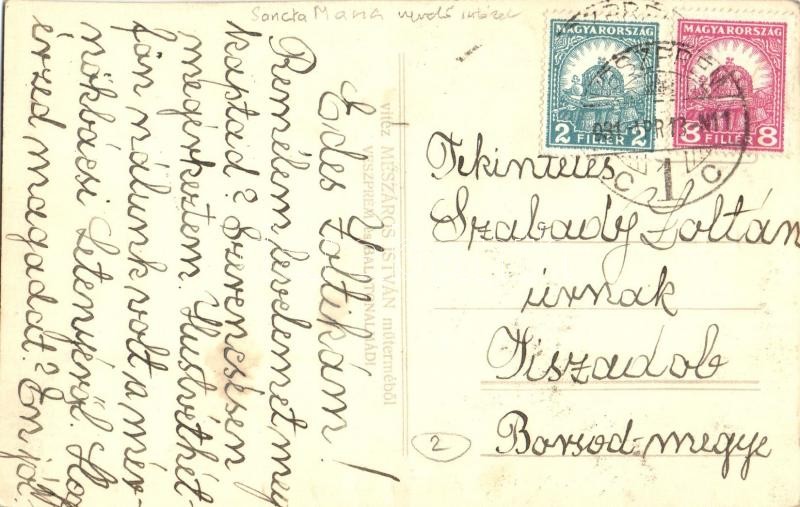 Sancta Maria nevelő intézet
Édes Zoltikám!
Remélem levelemet meg
kaptad? Szerencsésen
megérkeztem. Husthvét hét-
főn nálunk volt, a mér-
nökbácsi Letenyéről. Hog
érzed, magadat? Én jól.
vitéz MÉSZÁROS ISTVÁN műterméből
VESZPRÉM ÉS BALATONALMÁDI
MAGYARORSZÁG
2 FILLÉR 2
MAGYARORSZÁG
8 FILLÉR 8
1
C C
Tekintetes
Szabady Zoltán
úrnak
Tiszadob
Borsod-megye
2